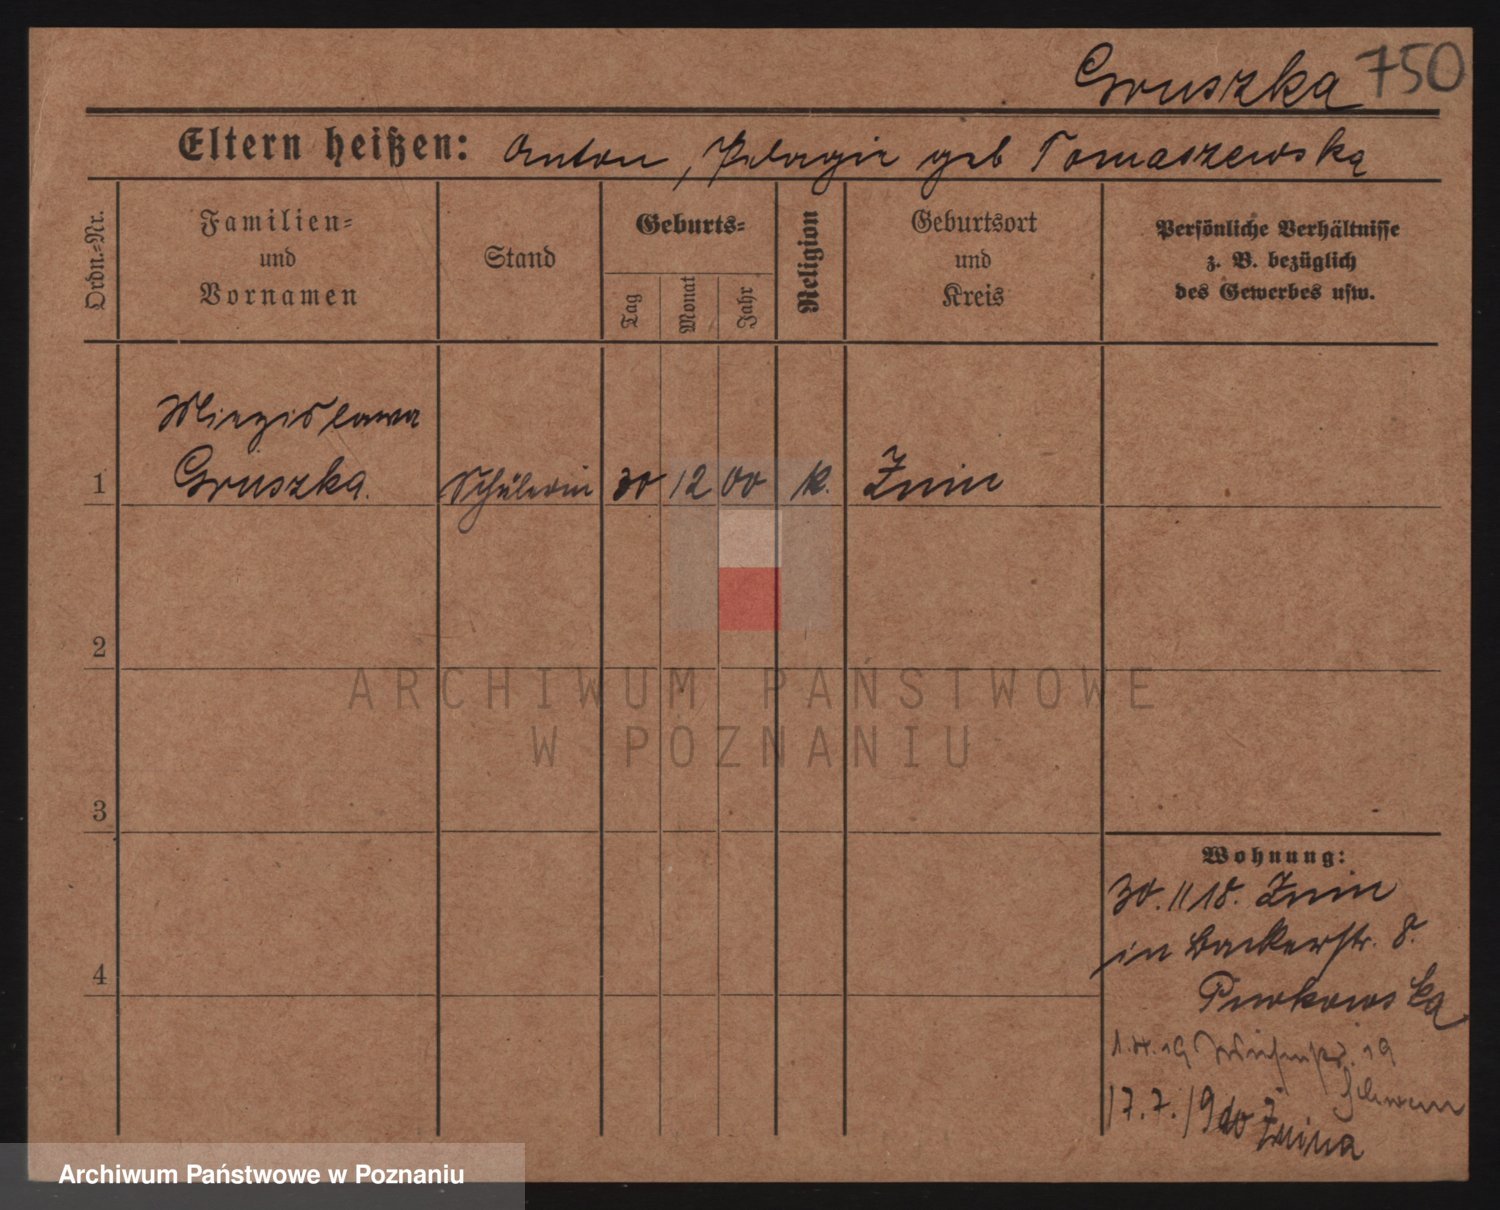 Gruszka 750
Eltern heißen: Anton, Pelagie geb Tomaszewska
Ordn.=Nr.
Familien=
und
Vornamen
Stand
Geburts=
Tag
Monat
Jahr
Religion
Geburtsort
und
Kreis
Persönliche Verhältnisse
z. B. bezüglich
des Gewerbes usw.
Miezislawa
1 Gruszka. Schülerin 30 12 00 K. Znin
2
ARCHIWUM PAŃSTWOWE
W POZNANIU
3
Wohnung:
30. 11 18. Znin
in Bäckerstr. 8.
4
1. 19 19
17.7.19 do Żnina
Archiwum Państwowe w Poznaniu